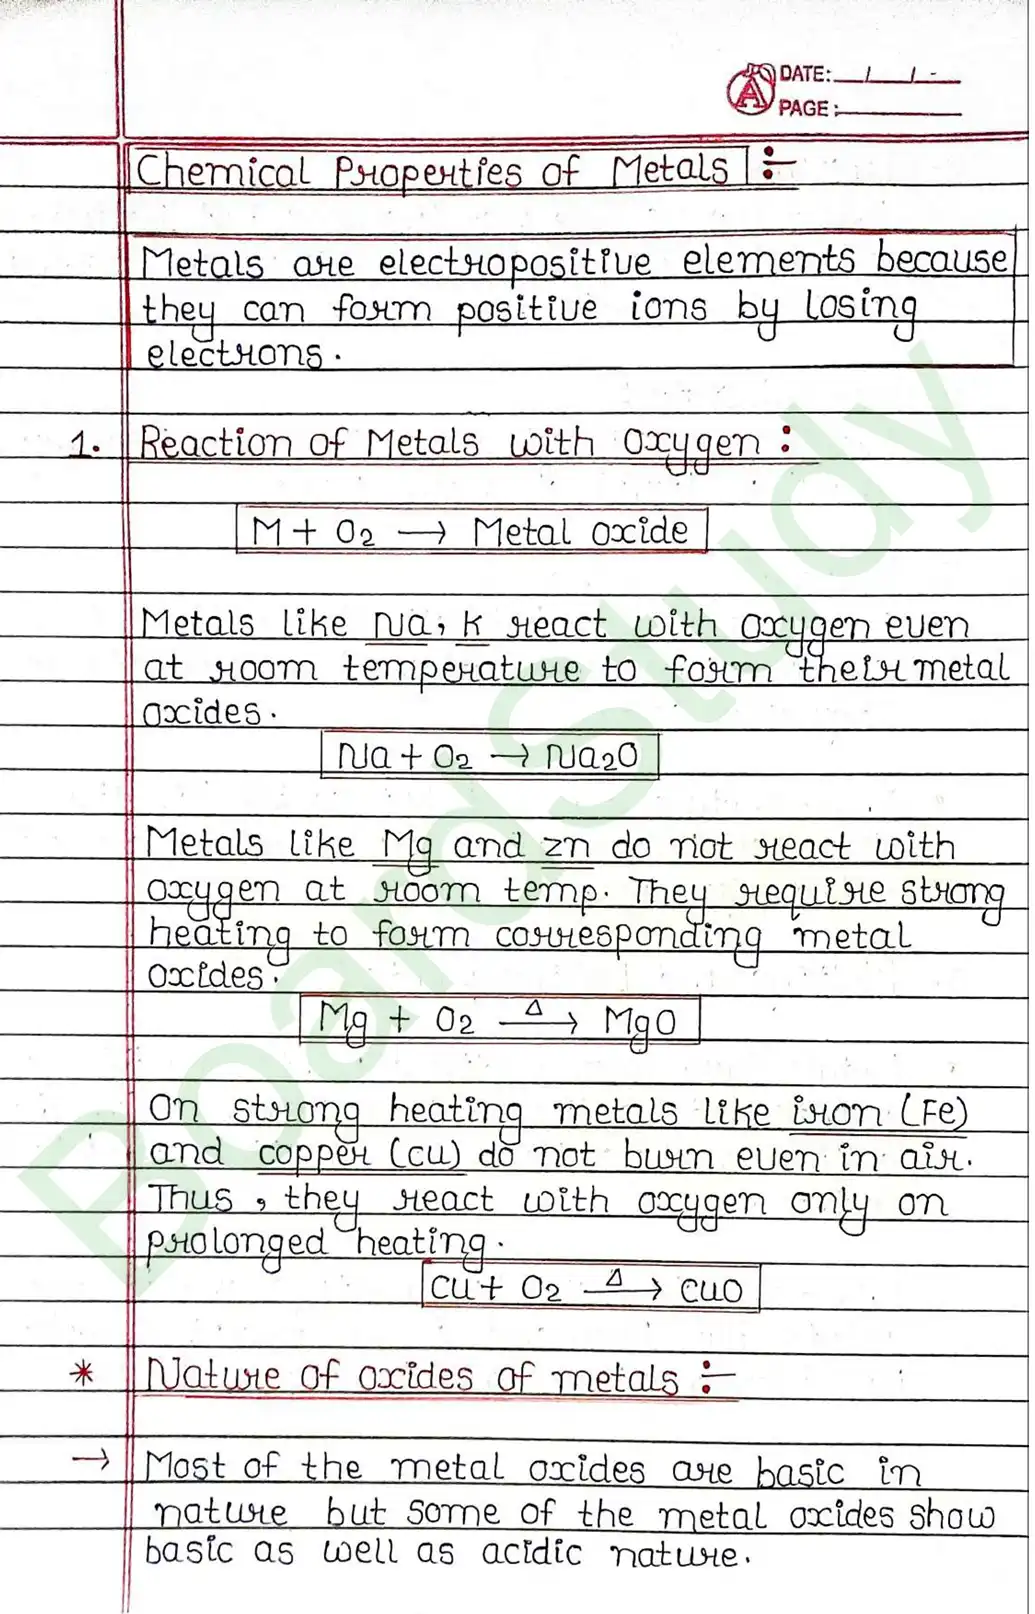 DATE: / /
PAGE:
Chemical Properties of Metals :-
Metals are electropositive elements because
they can form positive ions by losing
electrons.
1. Reaction of Metals with Oxygen :
M + O₂ ⟶ Metal oxide
Metals like Na, K react with oxygen even
at room temperature to form their metal
oxides.
Na + O₂ → Na₂O
Metals like Mg and Zn do not react with
oxygen at room temp. They require strong
heating to form corresponding metal
oxides.
Mg + O₂ —Δ→ MgO
On strong heating metals like iron (Fe)
and copper (Cu) do not burn even in air.
Thus, they react with oxygen only on
prolonged heating.
Cu + O₂ —Δ→ CuO
* Nature of oxides of metals :-
→ Most of the metal oxides are basic in
nature but some of the metal oxides show
basic as well as acidic nature.
BoardStudy